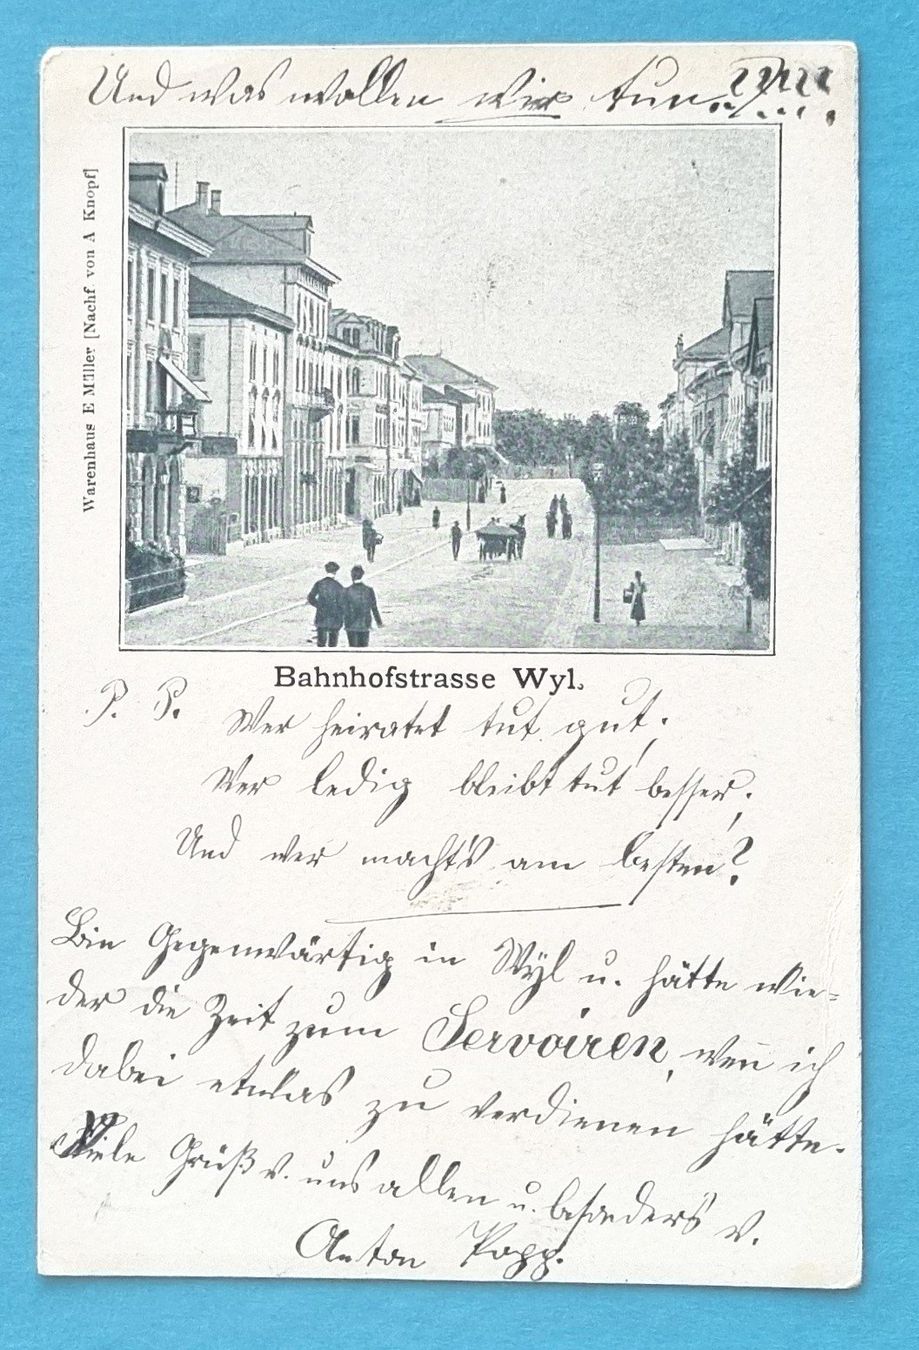 Und was wollen wir tun..?....????
Warenhaus E Müller [Nachf von A Knopf]
Bahnhofstrasse Wyl.
P. S. Wer heiratet tut gut;
Wer ledig bleibt tut besser;
Und wer macht's am besten?
Bin Gegenwärtig in Wÿl u. hätte wie=
der die Zeit zum Servoiren, wen̄ ich
dabei etwas zu verdienen hätte.
Viele Grüß v. uns allen u. besonders v.
Anton Popp.